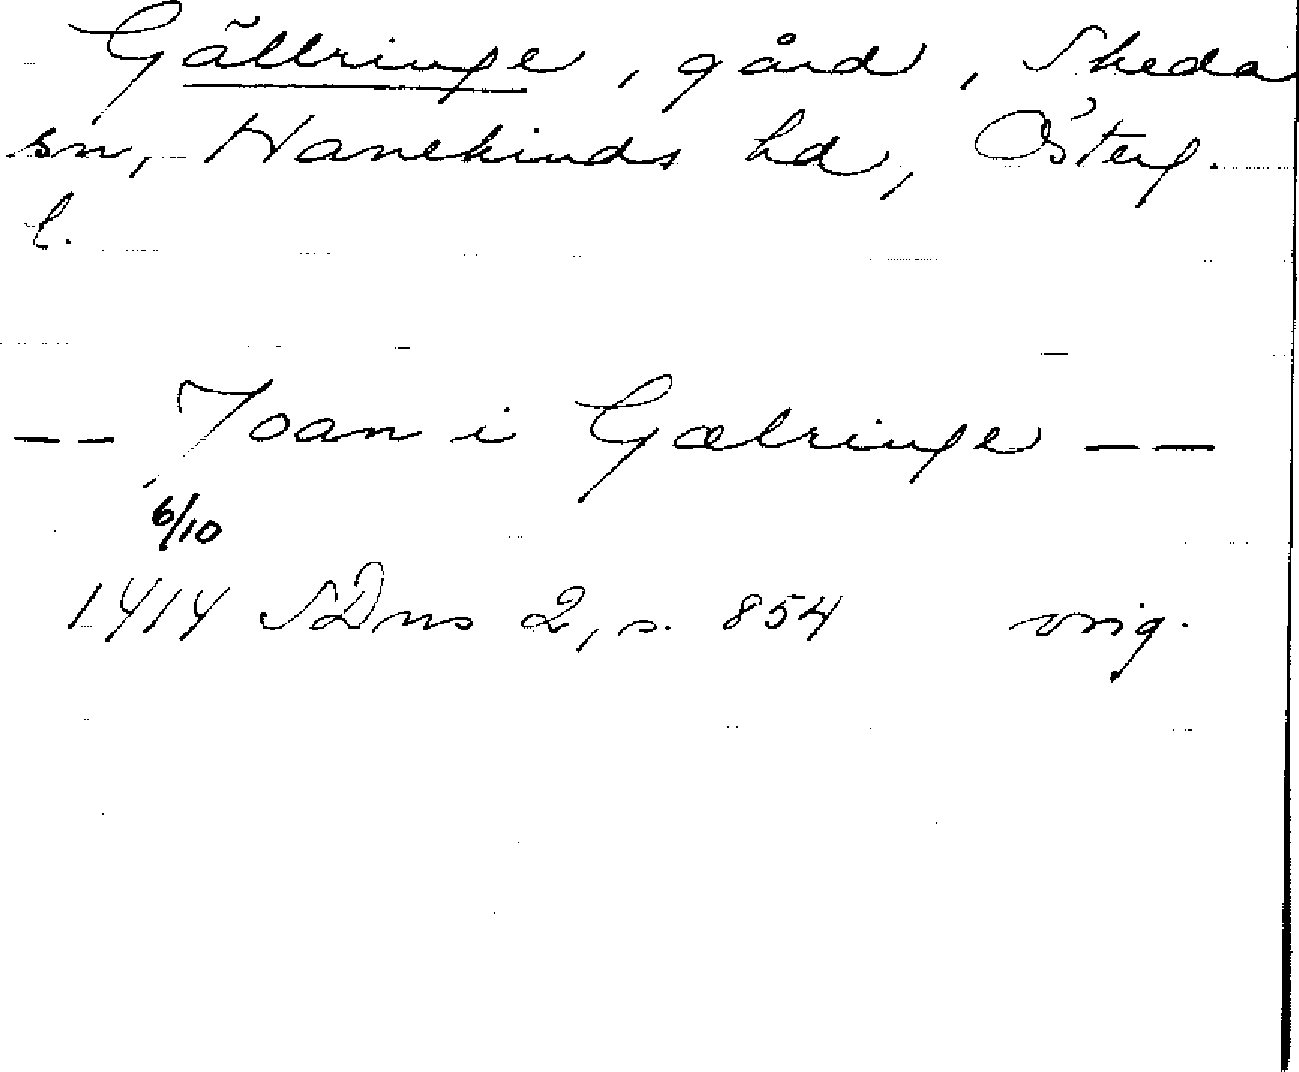 Gällringe, gård, Skeda
sn, Hanekinds hd, Österg.
l.
-- Joan i Gælringe --
6/10
1414 SDns 2, s. 854 orig.